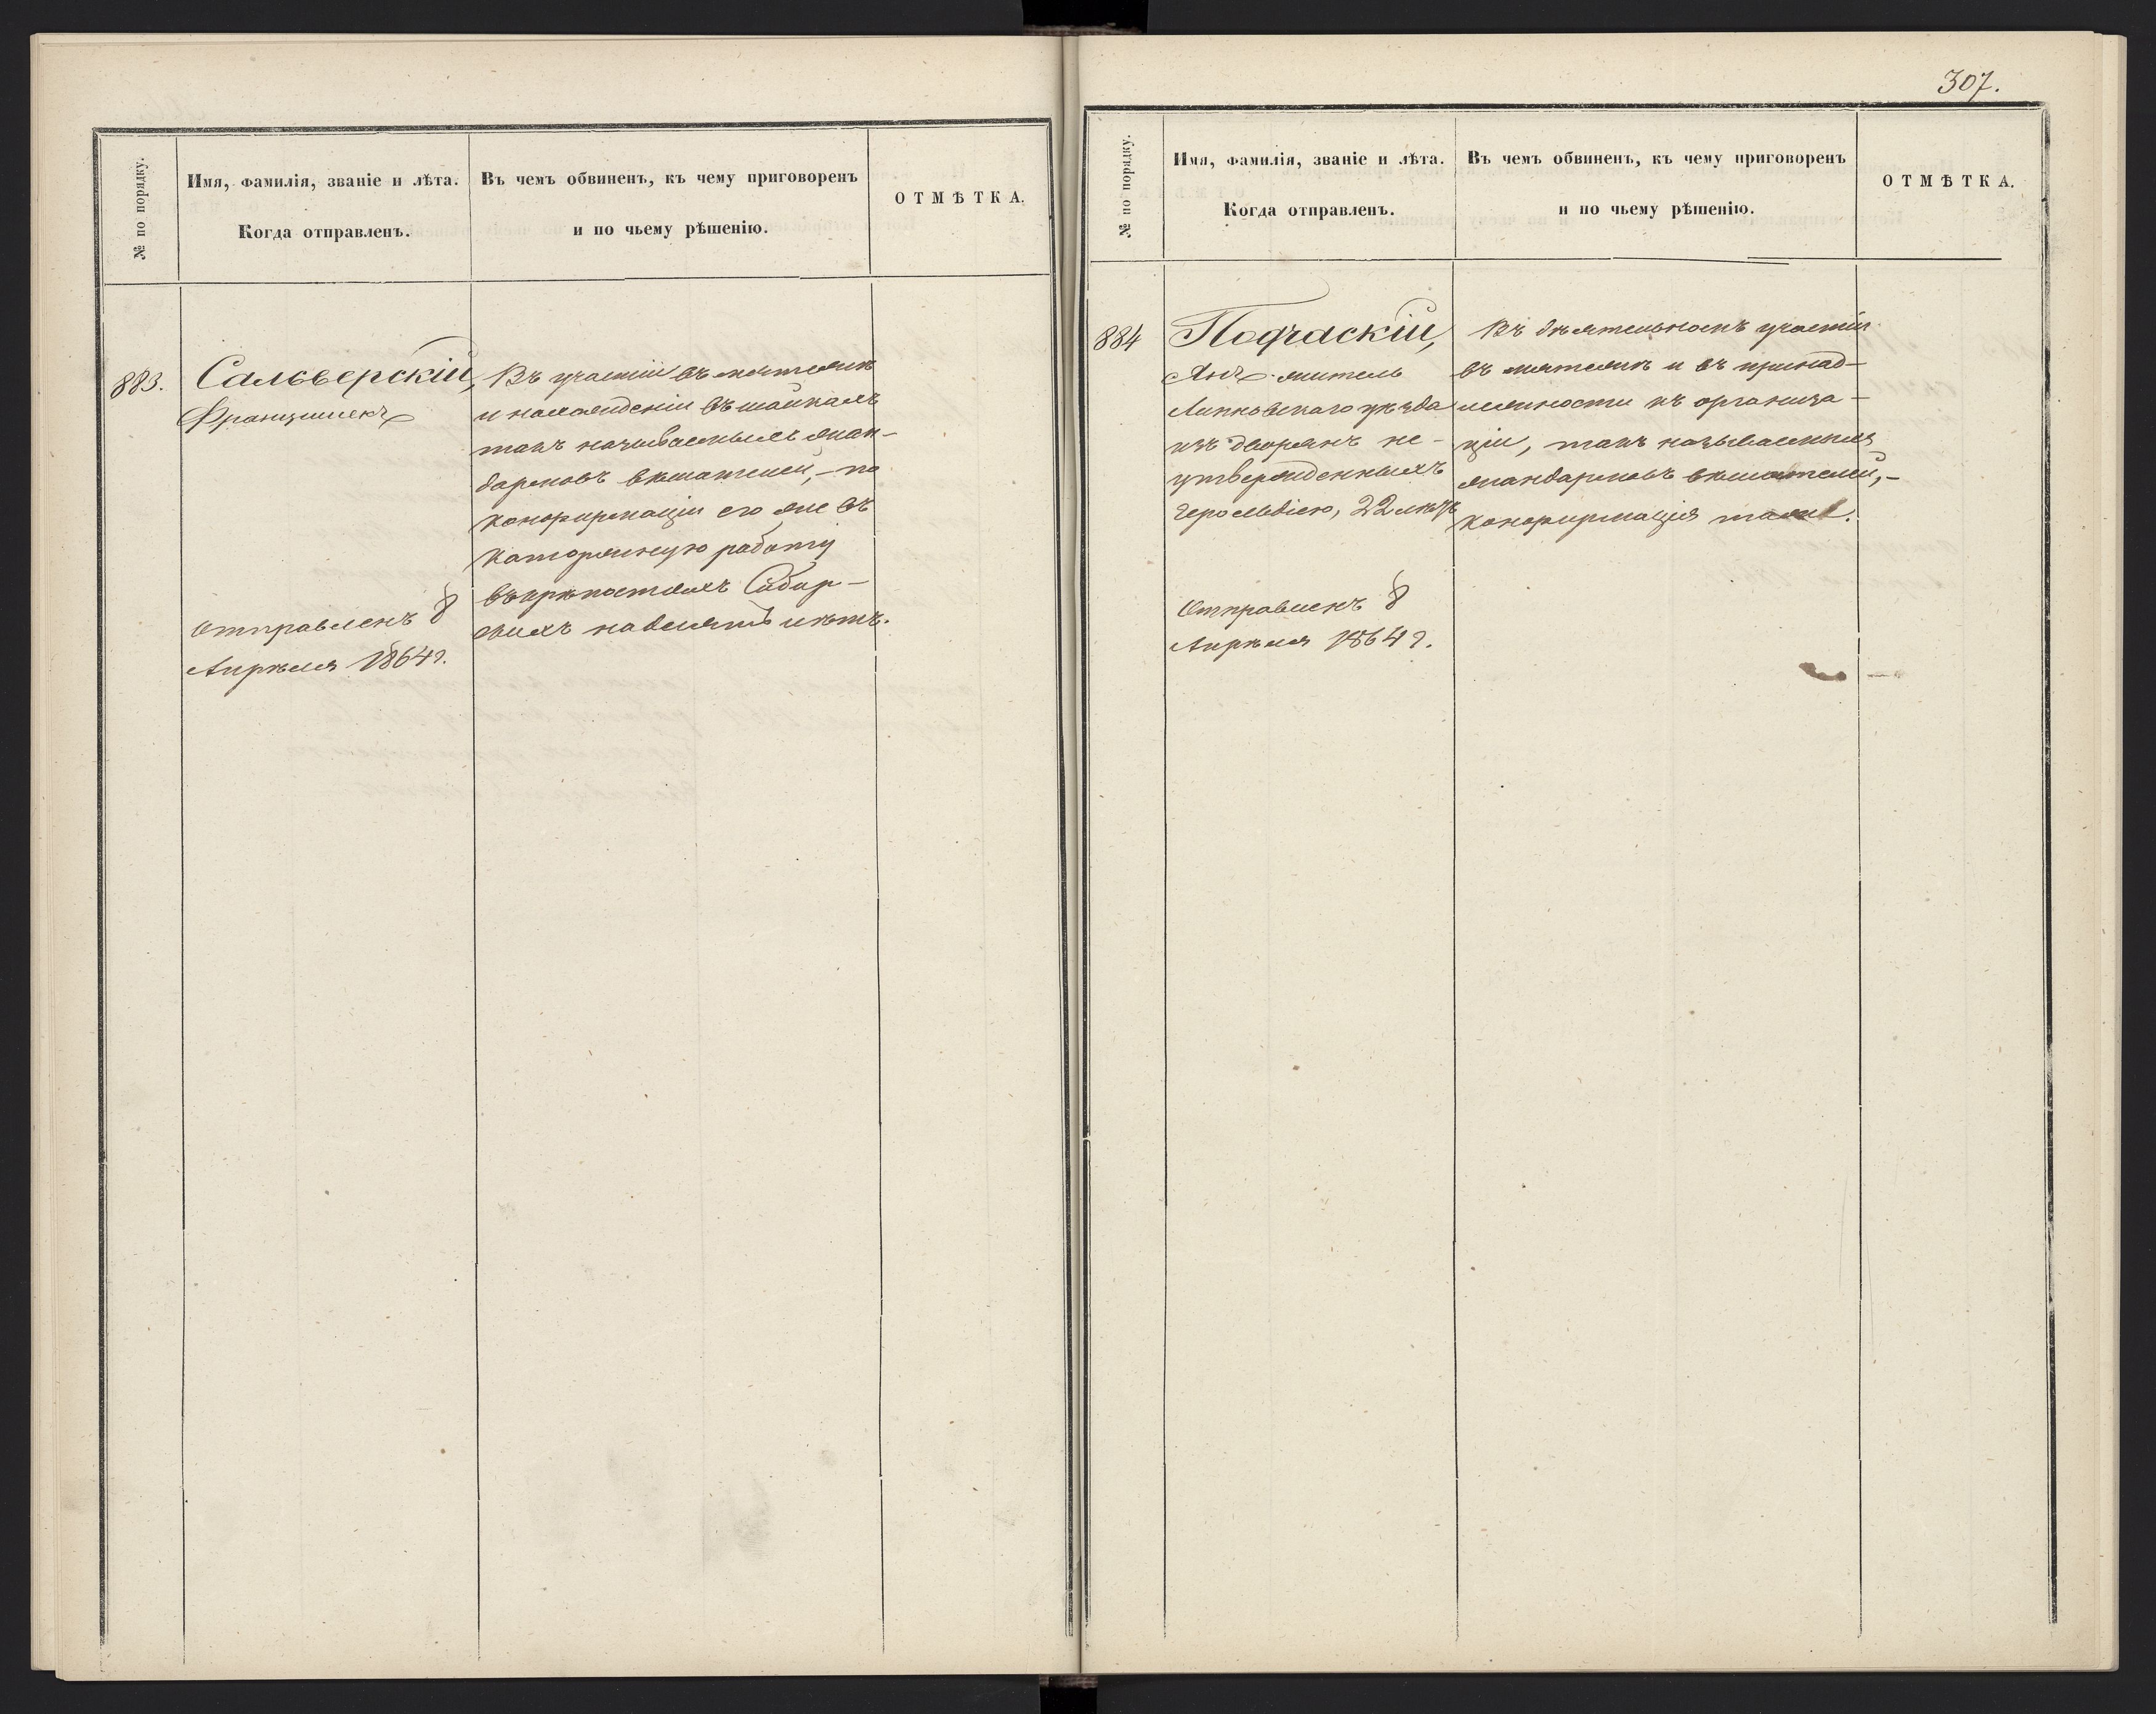 № по порядку.
Имя, фамилія, званіе и лѣта.
Когда отправленъ.
Въ чемъ обвиненъ, къ чему приговоренъ
и по чьему рѣшенію.
ОТМѢТКА.
883.
Сальверскій,
Францишекъ
Отправленъ 8
Апрѣля 1864 г.
Въ участіи въ мятежѣ
и нахожденіи въ шайкахъ
такъ называемыхъ жан-
дармовъ вѣшателей, – по
конфирмаціи его же въ
каторжную работу
въ крѣпостяхъ Сибир-
скихъ на девять лѣтъ.
307.
№ по порядку.
Имя, фамилія, званіе и лѣта.
Когда отправленъ.
Въ чемъ обвиненъ, къ чему приговоренъ
и по чьему рѣшенію.
ОТМѢТКА.
884
Подчаскій,
Янъ житель
Липновскаго уѣзда
изъ дворянъ не-
утвержденныхъ
Герольдіею, 22 лѣтъ
Отправленъ 8
Апрѣля 1864 г.
Въ дѣятельномъ участіи
въ мятежѣ и въ принад-
лежности къ организа-
ціи, такъ называемыхъ
жандармовъ вѣшателей, –
конфирмація таже.